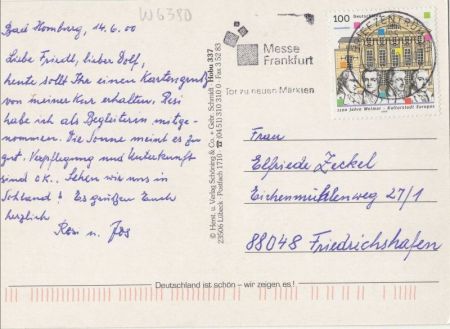 W6380
Bad Homburg, 14.6.00
Liebe Friedl, lieber Dolf,
heute sollt Ihr einen Kartengruß
von meiner Kur erhalten. Resi
habe ich als Begleiterin mitge-
nommen. Die Sonne meint es zu
gut. Verpflegung und Unterkunft
sind o.k.. Sehen wir uns in
? Es grüßen Euch
herzlich
u.
© Herst. u. Verlag Schöning & Co. + Gebr. Schmidt Huhu 337
23506 Lübeck · Postfach 1710 · ☎ (04 51) 310 31 0 · Fax 3 52 83
Messe
Frankfurt
Tor zu neuen Märkten
BRIEFZENTRUM
100 Deutschland
1100 Jahre Weimar – Kulturstadt Europas
Frau
Elfriede Zeckel
Eichenmühlenweg 27/1
88048 Friedrichshafen
Deutschland ist schön – wir zeigen es!